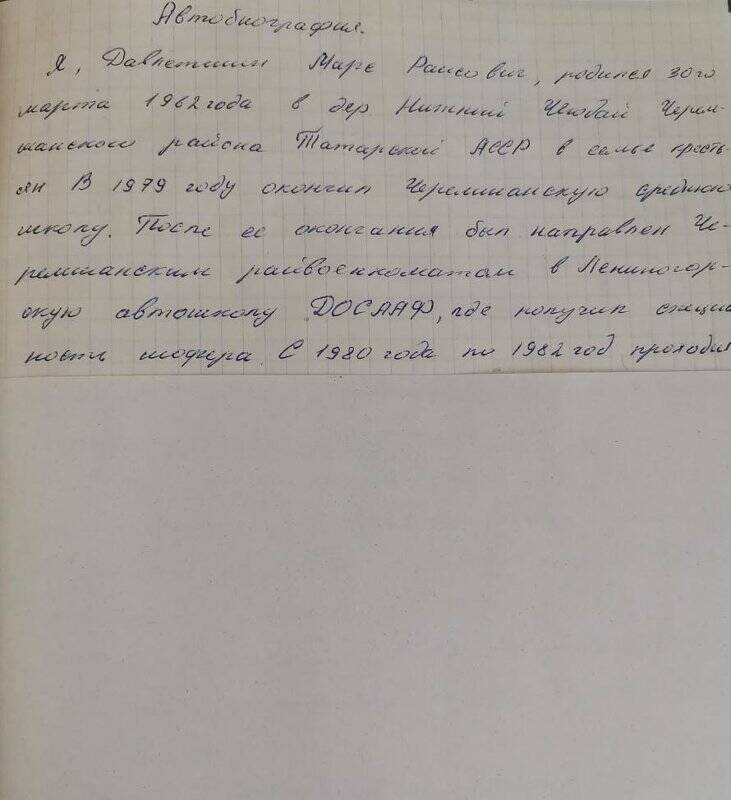 Автобиография.
Я, Давлетшин Марс Раисович, родился 30го
марта 1962 года в дер Нижний Чегодай Черем-
шанского района Татарской АССР в семье кресть-
ян В 1979 году окончил Черемшанскую среднюю
школу. После ее окончания был направлен Че-
ремшанским райвоенкоматом в Лениногор-
скую автошколу ДОСААФ, где получил специа
ность шофера. С 1980 года по 1982 год проходил